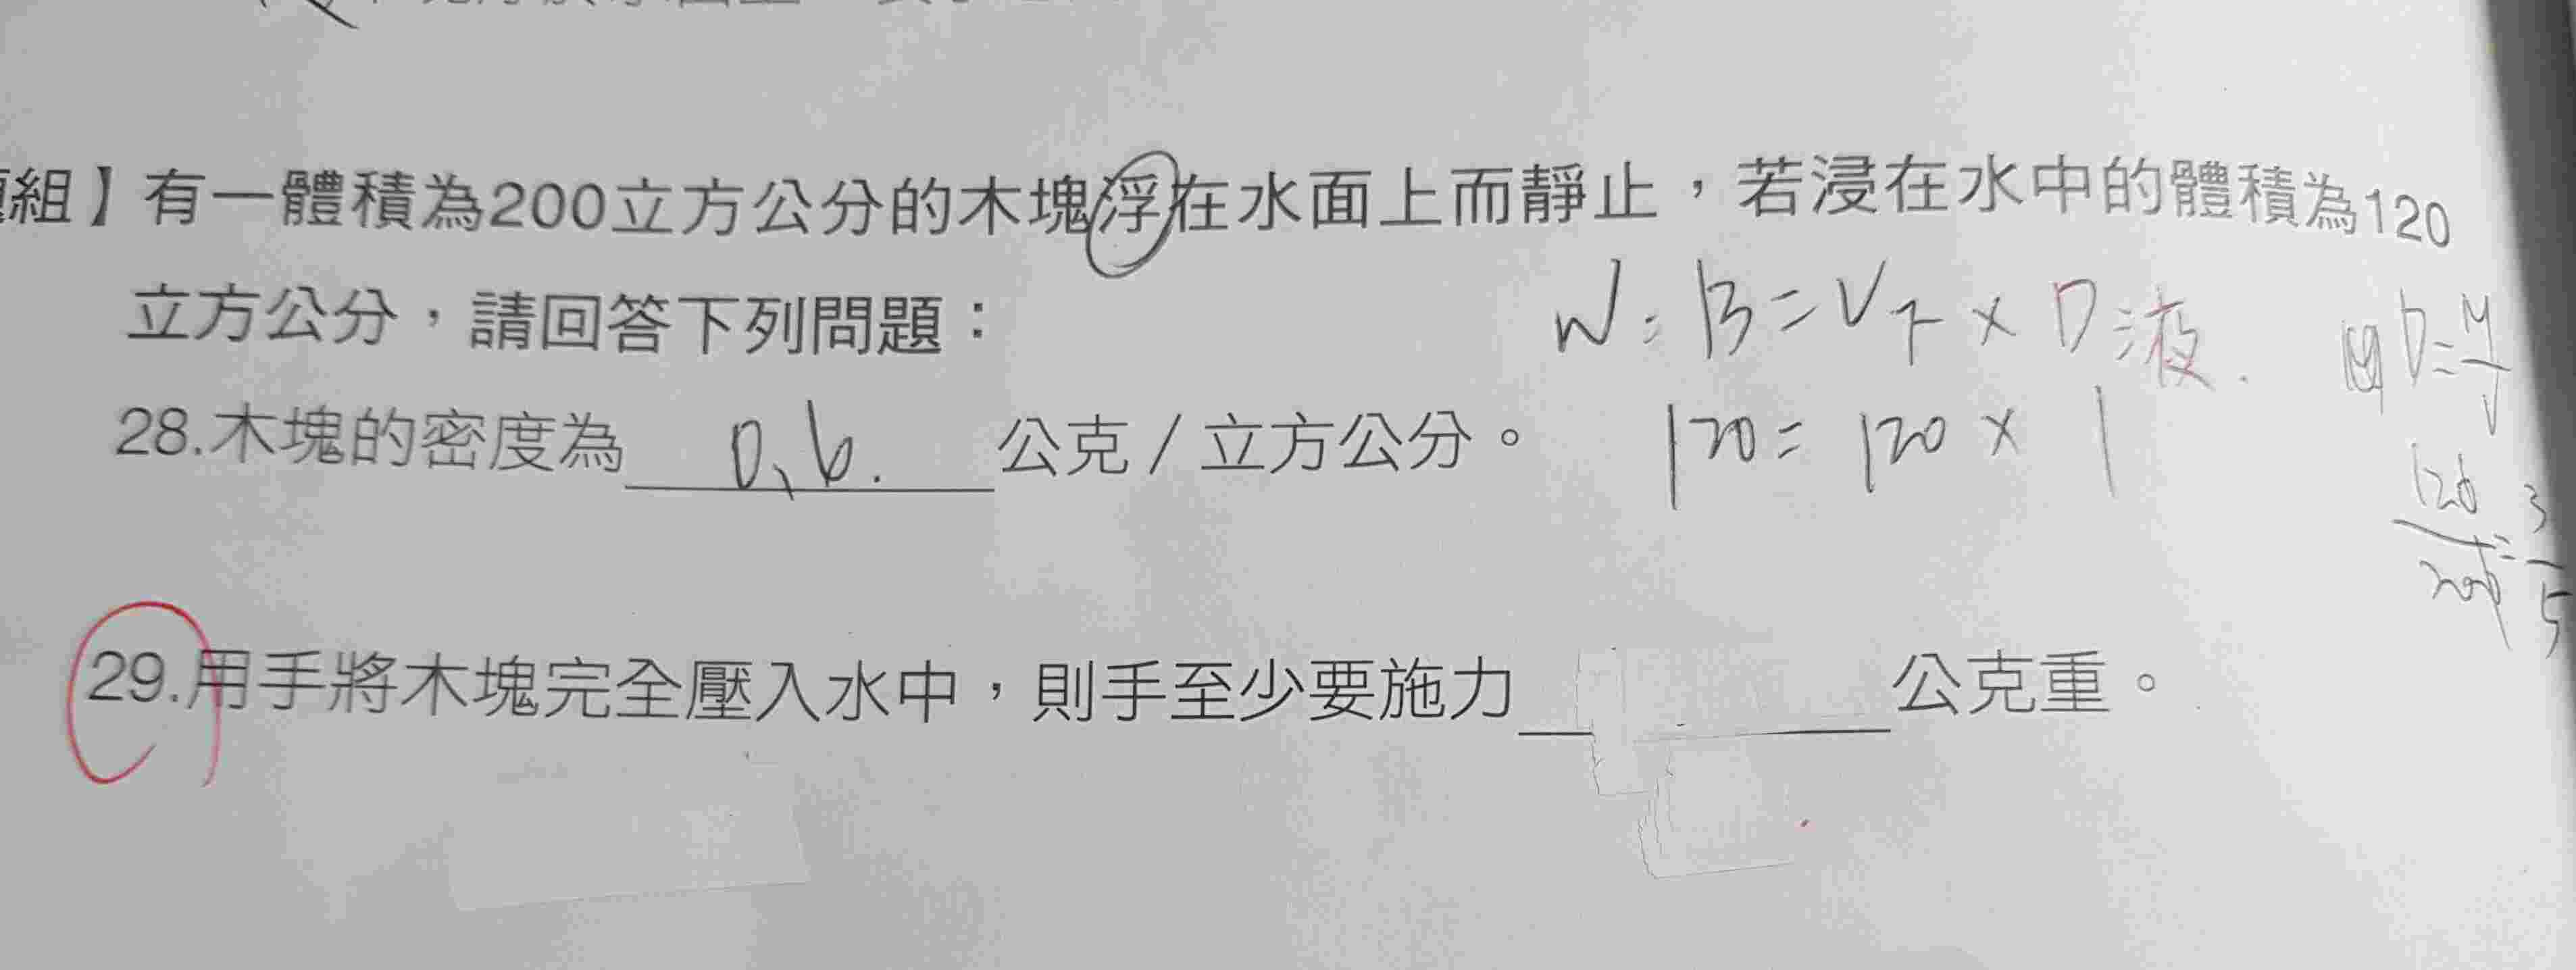 組】有一體積為200立方公分的木塊浮在水面上而靜止，若浸在水中的體積為120
立方公分，請回答下列問題：
W=B=V下×D液.
D=M/V
28.木塊的密度為 0.6. 公克/立方公分。
120=120×1
120/200=3/5
29.用手將木塊完全壓入水中，則手至少要施力＿＿＿公克重。